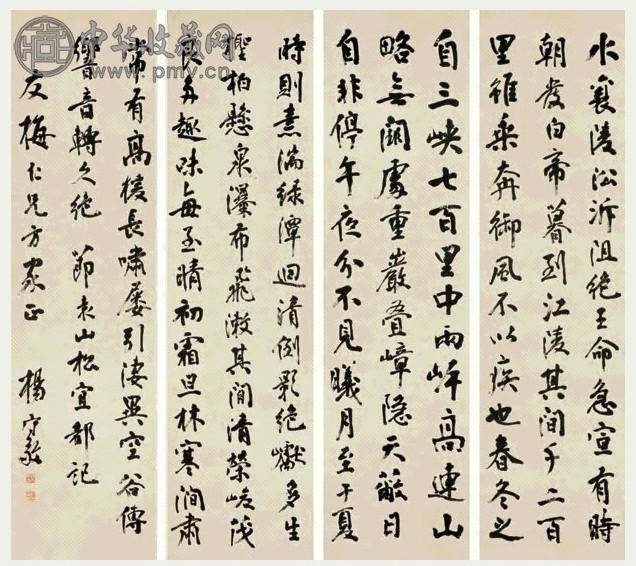 水襄陵沿泝阻絕王命急宣有時
朝發白帝暮到江陵其間千二百
里雖乘奔御風不以疾也春冬之
自三峽七百里中兩岸高連山
略無闕處重巖叠嶂隱天蔽日
自非停午夜分不見曦月至于夏
時則素湍綠潭迴清倒影絕巘多生
檉柏懸泉瀑布飛漱其間清榮峻茂
良多趣味每至晴初霜旦林寒澗肅
常有高猿長嘯屢引淒異空谷傳
響音轉久絕 節袁山松宜都記
友梅仁兄方家正 楊守敬
中华收藏网
www.pmyv.cn